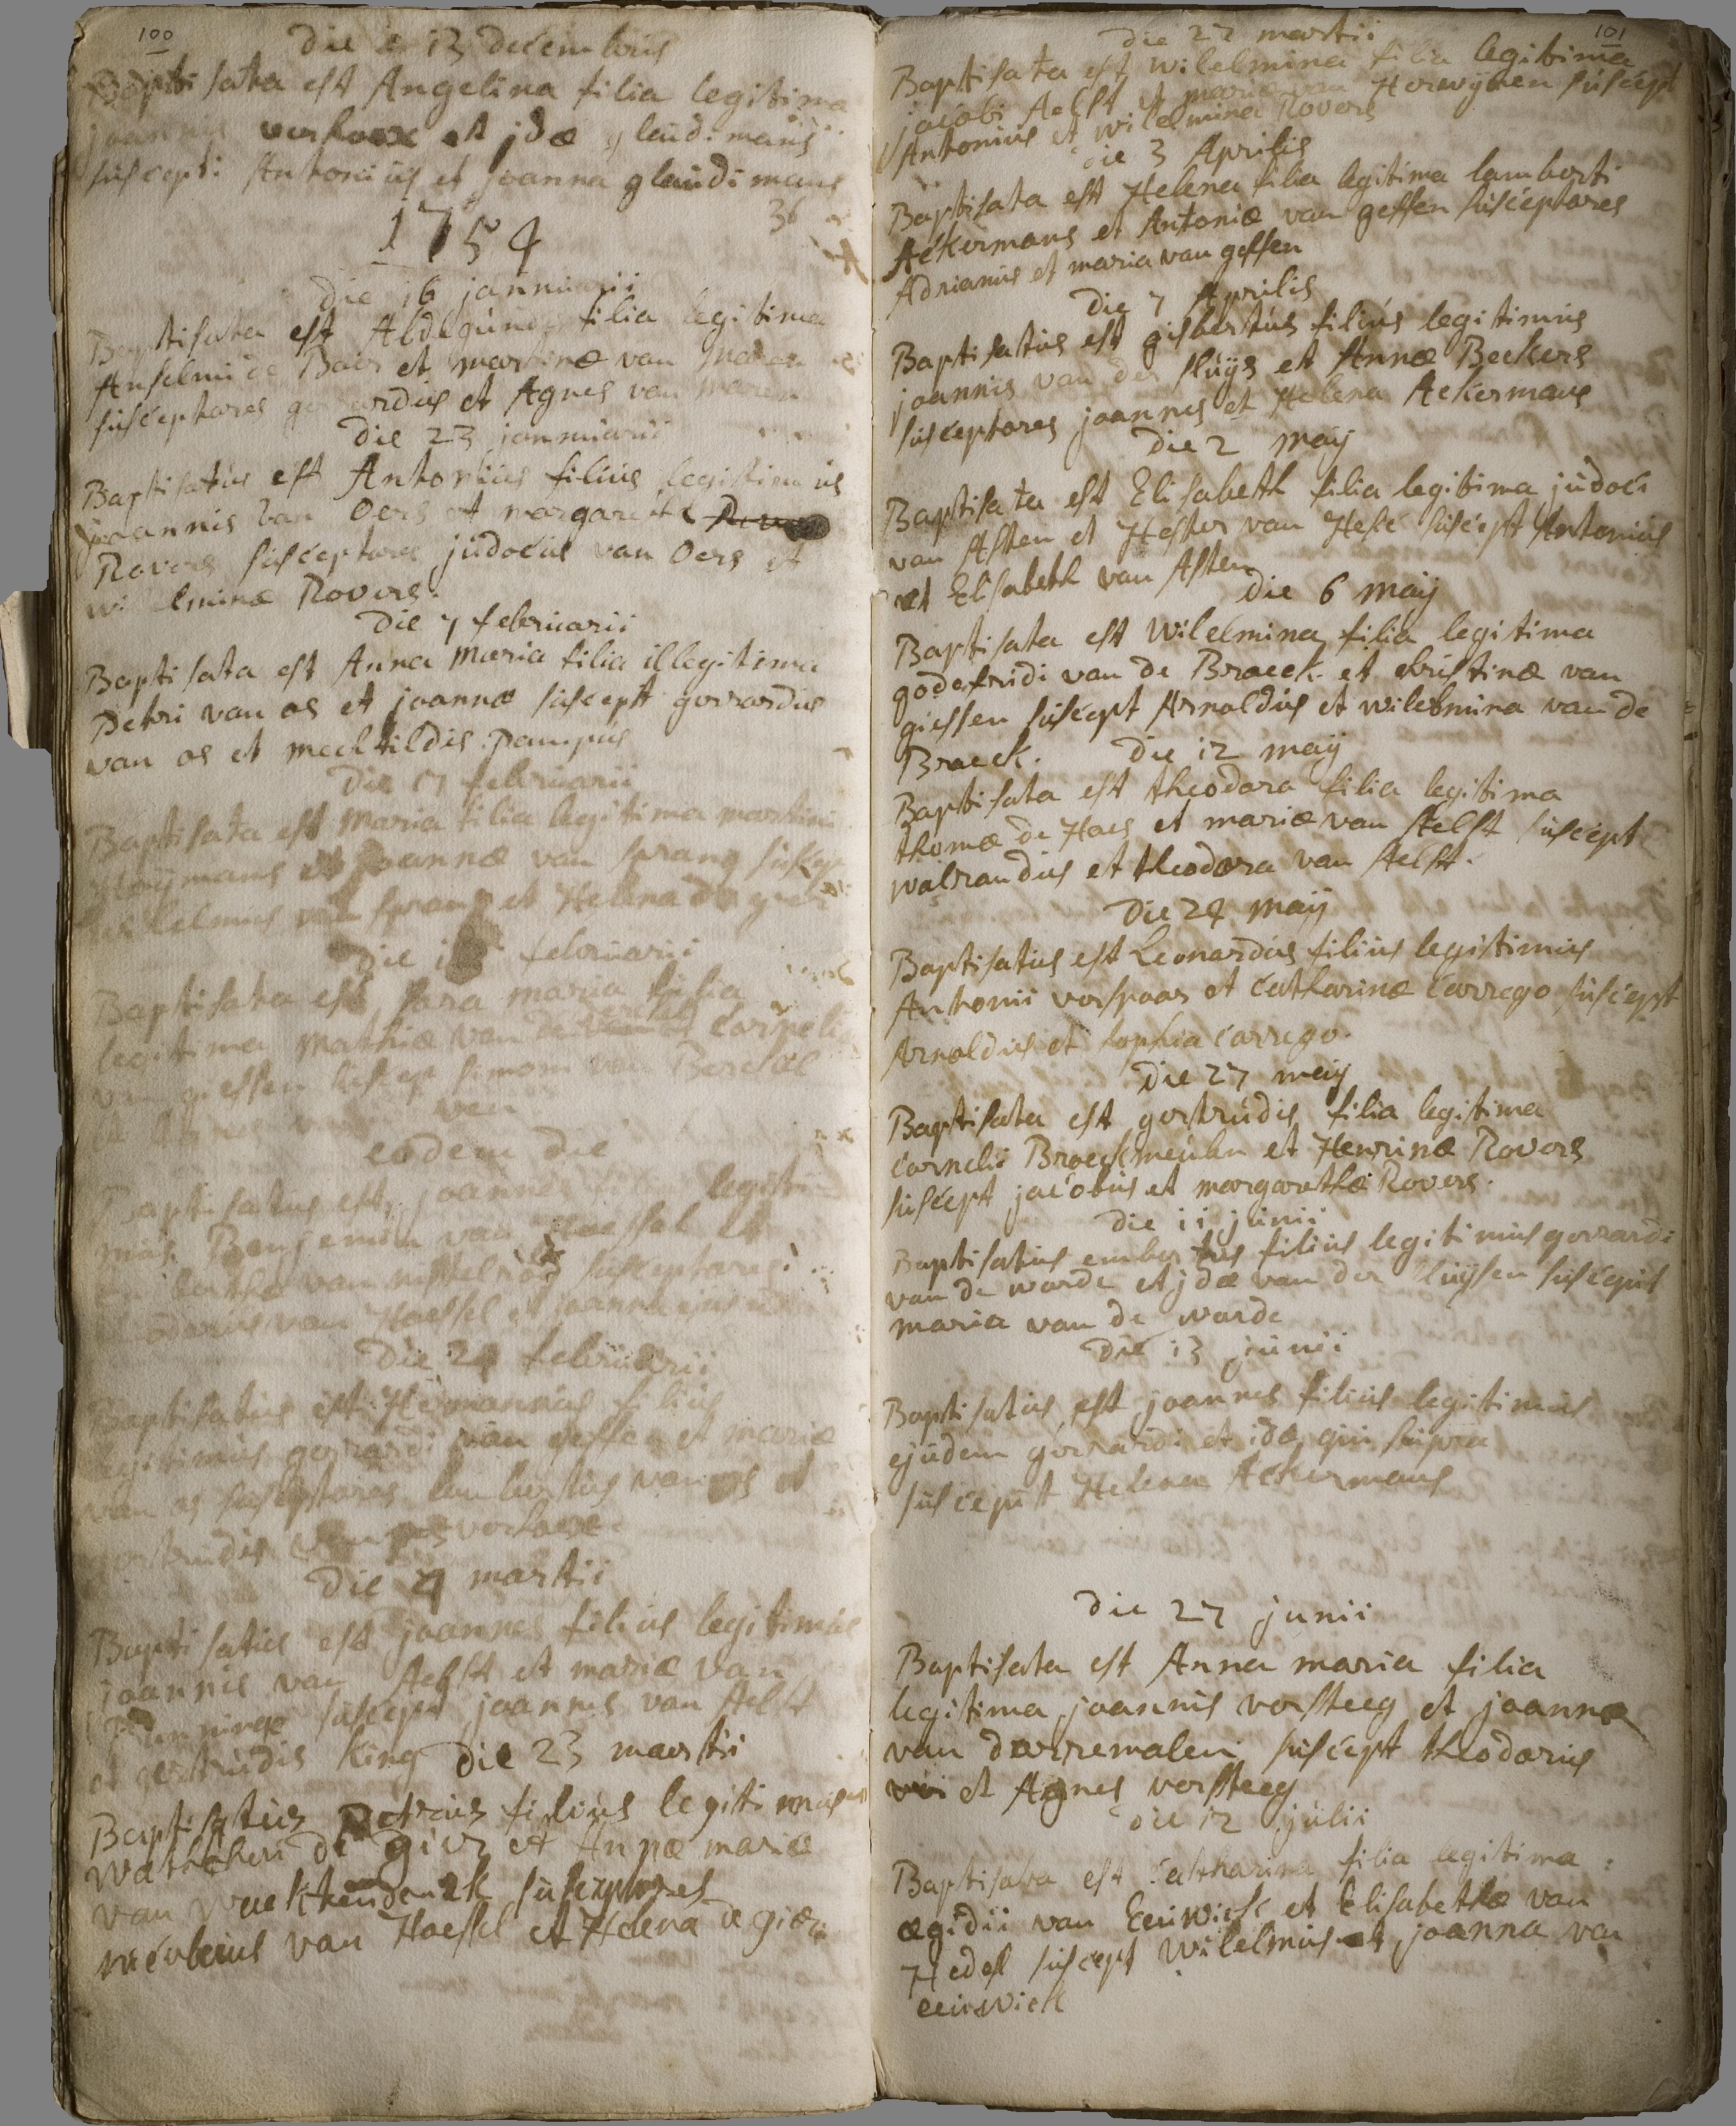 100
die 13 decembris
Baptisata est Angelina filia legitima
joannis verhoex et jdæ glaud:mans
suscept: Antonius et joanna glaudimans
36
1754
die 16 jannuarii
Baptisata est Aldegundis filia legitima
Anselmi de Baer et martinæ van maren
susceptores gerardus et Agnes van maren
die 23 jannuarii
Baptisatus est Antonius filius legitimus
joannis van Oers et margaritæ
Rovers susceptores judocus van Oers et
wilelminæ Rovers.
die 7 februarii
Baptisata est Anna maria filia illegitima
Petri van os et joannæ suscept gerrardus
van os et mechtildis pampus
die 17 februarii
Baptisata est maria filia legitima martini
et joannæ van sprang suscep
wilelmus van sprang et Helena de gier
die februarii
Baptisata est sara maria filia
legitima mathiæ van de Cornelia
van giessen suscep simon van Berckel
eodem die
Baptisatus est joannes legiti
mus Benjemin van Haessel et
van susceptores
theodorus van Haessel et joanna
die 24 februarii
Baptisatus est Hermannus filius
legitimus gerrardi van gessen et mariæ
van os susceptores lambertus van os et
gertrudis verhoex
die 4 martii
Baptisatus est joannes filius legitimus
joannis van Aelst et mariæ van
suscept joannes van Aelst
et gertrudis King die 23 martii
Baptisatus Petrus filius legitimus
walthheri de gier et Annæ mariæ
van susceptores
nicolaius van Haessel et Helena de gier
101
die 27 martii
Baptisata est wilelmina filia legitima
jacobi Aelst et mariæ van Herwijnen suscept
Antonius et wilelmina Rovers
die 3 Aprilis
Baptisata est Helena filia legitima lamberti
Ackermans et Antoniæ van gessen susceptores
Adrianus et maria van gessen
die 7 Aprilis
Baptisatus est gisbertus filius legitimus
joannis van der sluijs et Annæ Beckers
susceptores joannes et Helena Ackermans
die 2 maij
Baptisata est Elisabeth filia legitima judoci
van Asten et Hester van Hese suscept Antonius
et Elisabeth van Asten
die 6 maij
Baptisata est wilelmina filia legitima
godefridi van de Braeck et christinæ van
giessen suscept Arnoldus et wilelmina van de
Braeck. die 12 maij
Baptisata est theodora filia legitima
thomæ de Haes et mariæ van Aelst suscept
walrandus et theodora van Aelst.
die 24 maij
Baptisatus est Leonardus filius legitimus
Antonii verspaar et catharinæ carrego suscept
Arnoldus et sophia carrego.
die 27 maij
Baptisata est gertrudis filia legitima
cornelii Braeckmeulen et Henrinæ Rovers
suscept jacobus et margaretha Rovers.
die 11 junii
Baptisatus embertus filius legitimus gerrardi
van de warde et jdæ van der sluijsen suscepit
maria van de warde
die 13 junii
Baptisatus est joannes filius legitimus
ejudem gerrardi et idæ qui supra
suscepit Helena Ackermans
die 27 junii
Baptisata est Anna maria filia
legitima joannis versteeg et joannæ
van darremalen suscept theodorus
et Agnes versteeg
die 12 julii
Baptisata est Catharina filia legitima
ægidii van Eeuwick et Elisabethæ van
Hedel suscept wilelmus et joanna van
eeuwick